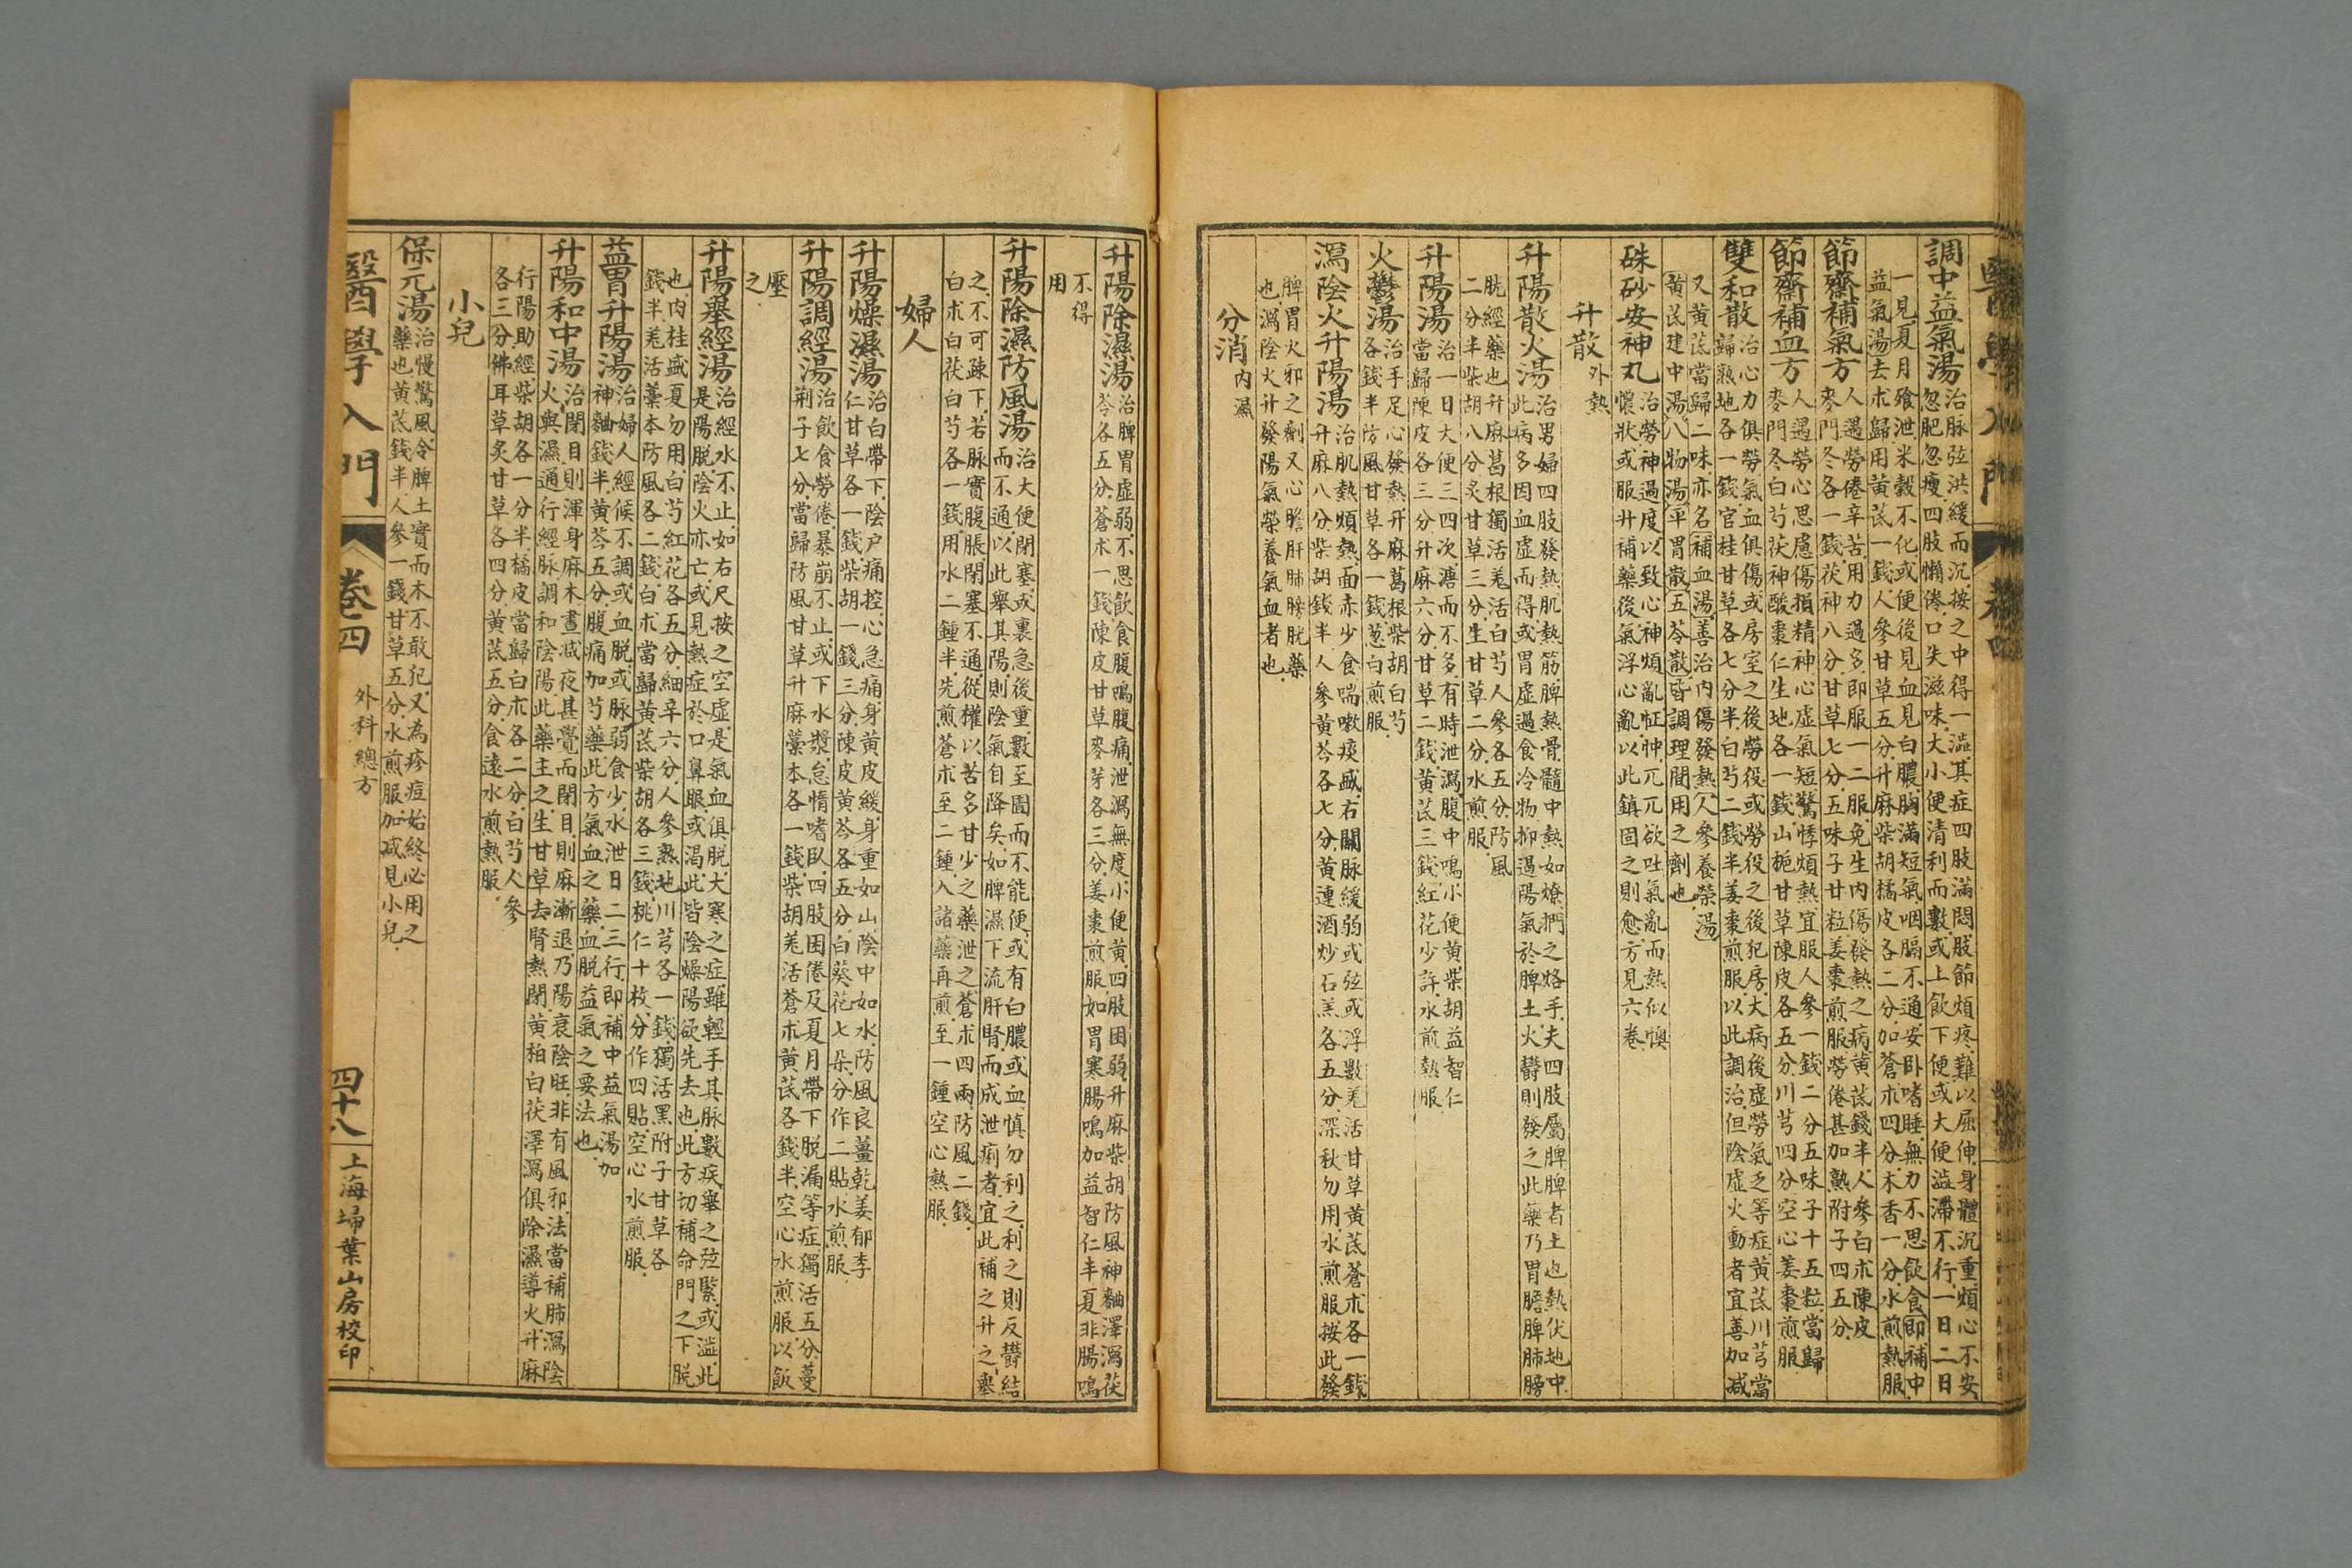 醫學入門 卷四
調中益氣湯 治脉弦洪緩而沉按之中得一澁其症四肢滿悶肢節煩疼難以屈伸身體沉重煩心不安
忽肥忽瘦四肢懶倦口失滋味大小便清利而數或上飲下便或大便澁滯不行一日二日
一見夏月飱泄米穀不化或便後見血見白膿胸滿短氣咽膈不通安卧嗜睡無力不思飲食即補中
益氣湯去朮歸用黃芪一錢人參甘草五分升麻柴胡橘皮各二分加蒼朮四分木香一分水煎熱服
節齋補氣方 人遇勞倦辛苦用力過多即服一二服免生內傷發熱之病黃芪錢半人參白朮陳皮
麥門冬各一錢茯神八分甘草七分五味子廿粒姜棗煎服勞倦甚加熟附子四五分
節齋補血方 人遇勞心思慮傷損精神心虛氣短驚悸煩熱宜服人參一錢二分五味子十五粒當歸
麥門冬白芍茯神酸棗仁生地各一錢山梔甘草陳皮各五分川芎四分空心姜棗煎服
雙和散 治心力俱勞氣血俱傷或房室之後勞役或勞役之後犯房大病後虛勞氣乏等症黃芪川芎當
歸熟地各一錢官桂甘草各七分半白芍二錢半姜棗煎服以此調治但陰虛火動者宜善加減
又黃芪當歸二味亦名補血湯善治內傷發熱人參養榮湯
黃芪建中湯八物湯平胃散五苓散皆調理間用之劑也
硃砂安神丸 治勞神過度以致心神煩亂怔忡兀兀欲吐氣亂而熱似懊
憹狀或服升補藥後氣浮心亂以此鎮固之則愈方見六卷
升散 外熱
升陽散火湯 治男婦四肢發熱肌熱筋脾熱骨髓中熱如燎捫之烙手夫四肢屬脾脾者土也熱伏地中
此病多因血虛而得或胃虛過食冷物抑遏陽氣於脾土火鬱則發之此藥乃胃膽脾肺膀
胱經藥也升麻葛根獨活羌活白芍人參各五分防風
二分半柴胡八分炙甘草三分生甘草二分水煎服
升陽湯 治一日大便三四次溏而不多有時泄瀉腹中鳴小便黃柴胡益智仁
當歸陳皮各三分升麻六分甘草二錢黃芪三錢紅花少許水煎熱服
火鬱湯 治手足心發熱升麻葛根柴胡白芍
各錢半防風甘草各一錢葱白煎服
瀉陰火升陽湯 治肌熱煩熱面赤少食喘嗽痰盛右關脉緩弱或弦或浮數羌活甘草黃芪蒼朮各一錢
升麻八分柴胡錢半人參黃芩各七分黃連酒炒石羔各五分深秋勿用水煎服按此發
脾胃火邪之劑又心膽肝肺膀胱藥
也瀉陰火升發陽氣榮養氣血者也
分消 內濕
升陽除濕湯 治脾胃虛弱不思飲食腹鳴腹痛泄瀉無度小便黃四肢困弱升麻柴胡防風神麯澤瀉茯
苓各五分蒼朮一錢陳皮甘草麥芽各三分姜棗煎服如胃寒腸鳴加益智仁半夏非腸鳴
不得
用
升陽除濕防風湯 治大便閉塞或裏急後重數至圊而不能便或有白膿或血慎勿利之利之則反鬱結
而不通以此舉其陽則陰氣自降矣如脾濕下流肝腎而成泄痢者宜此補之升之舉
之不可疎下若脉實腹脹閉塞不通從權以苦多甘少之藥泄之蒼朮四兩防風二錢
白朮白茯白芍各一錢用水二鍾半先煎蒼朮至二鍾入諸藥再煎至一鍾空心熱服
婦人
升陽燥濕湯 治白帶下陰户痛控心急痛身黃皮緩身重如山陰中如水防風良薑乾姜郁李
仁甘草各一錢柴胡一錢三分陳皮黃芩各五分白葵花七朵分作二貼水煎服
升陽調經湯 治飲食勞倦暴崩不止或下水漿怠惰嗜臥四肢困倦及夏月帶下脱漏等症獨活五分蔓
荊子七分當歸防風甘草升麻藁本各一錢柴胡羌活蒼朮黃芪各錢半空心水煎服以飯
壓
之
升陽舉經湯 治經水不止如右尺按之空虛是氣血俱脱大寒之症雖輕手其脉數疾舉之弦緊或澁此
是陽脱陰火亦亡或見熱症於口鼻眼或渴此皆陰燥陽欲先去也此方切補命門之下脱
也肉桂盛夏勿用白芍紅花各五分細辛六分人參熟地川芎各一錢獨活黑附子甘草各
錢半羌活藁本防風各二錢白朮當歸黃芪柴胡各三錢桃仁十枚分作四貼空心水煎服
益胃升陽湯 治婦人經候不調或血脱或脉弱食少水泄日二三行即補中益氣湯加
神麯錢半黃芩五分腹痛加芍藥此方氣血之藥血脱益氣之要法也
升陽和中湯 治閉目則渾身麻木晝减夜甚覺而閉目則麻漸退乃陽衰陰旺非有風邪法當補肺瀉陰
火與濕通行經脉調和陰陽此藥主之生甘草去腎熱閉黃柏白茯澤瀉俱除濕導火升麻
行陽助經柴胡各一分半橘皮當歸白朮各二分白芍人參
各三分佛耳草炙甘草各四分黃芪五分食遠水煎熱服
小兒
保元湯 治慢驚風令脾土實而木不敢犯又為疹痘始終必用之
藥也黃芪錢半人參一錢甘草五分水煎服加减見小兒
醫學入門 卷四 外科總方 四十八 上海埽葉山房校印